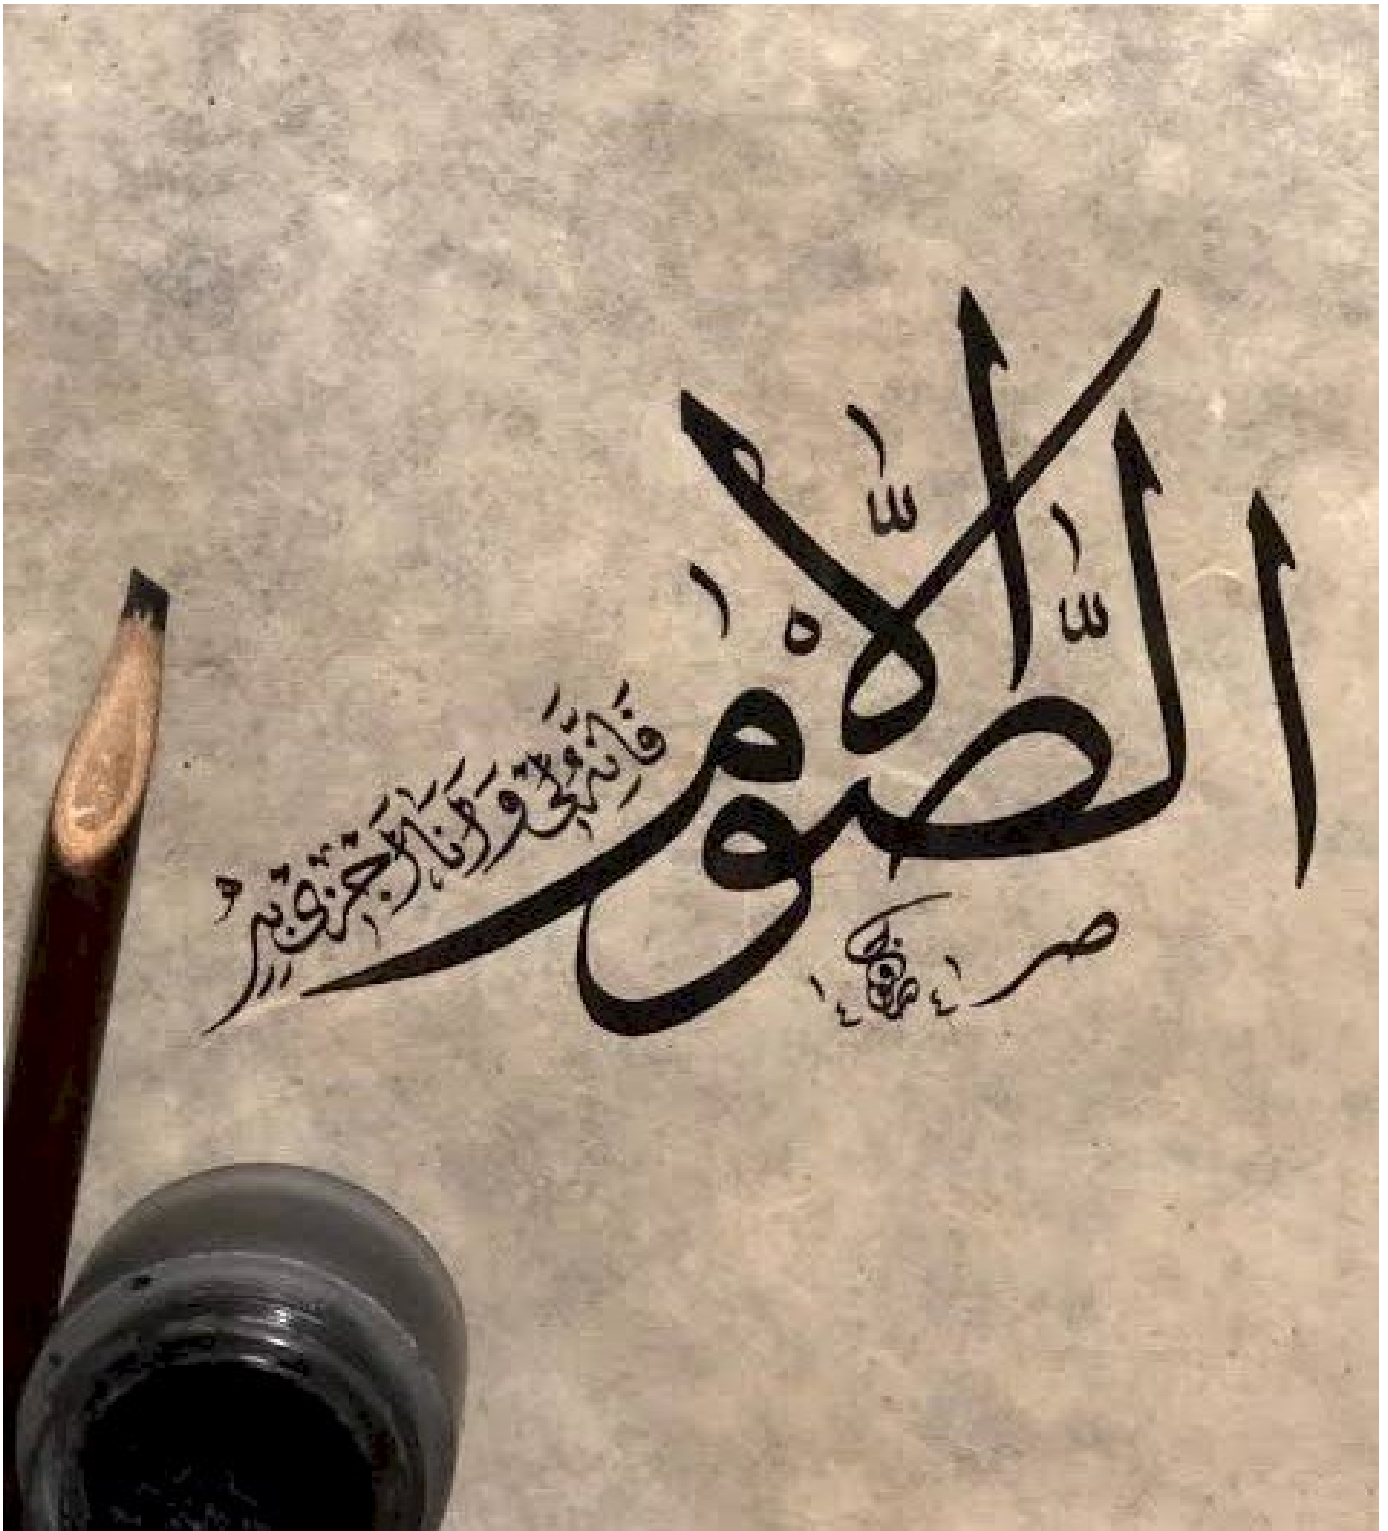 إلّا الصّوم
فَإنّهُ لي وَأَنَا أَجزي بِهِ